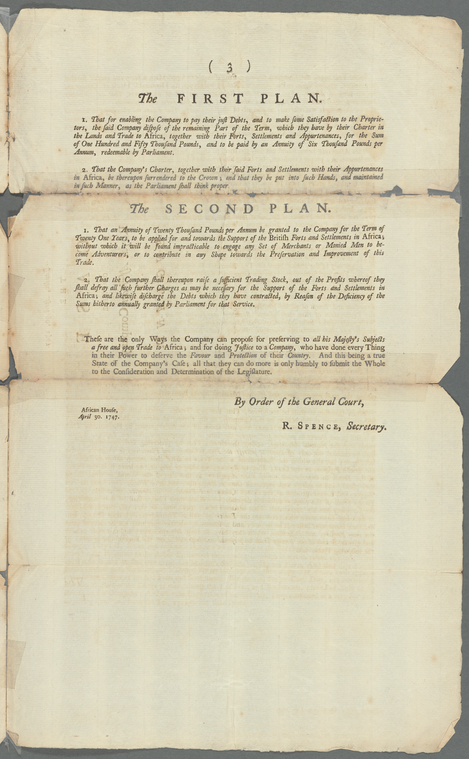 ( 3 )
The FIRST PLAN.
1. That for enabling the Company to pay their just Debts, and to make some Satisfaction to the Proprie-
tors, the said Company dispose of the remaining Part of the Term, which they have by their Charter in
the Lands and Trade to Africa, together with their Forts, Settlements and Appurtenances, for the Sum
of One Hundred and Fifty Thousand Pounds, and to be paid by an Annuity of Six Thousand Pounds per
Annum, redeemable by Parliament.
2. That the Company's Charter, together with their said Forts and Settlements with their Appurtenances
in Africa, be thereupon surrendered to the Crown; and that they be put into such Hands, and maintained
in such Manner, as the Parliament shall think proper.
The SECOND PLAN.
1. That an Annuity of Twenty Thousand Pounds per Annum be granted to the Company for the Term of
Twenty One Years, to be applied for and towards the Support of the British Forts and Settlements in Africa;
without which it will be found impracticable to engage any Set of Merchants or Monied Men to be-
come Adventurers, or to contribute in any Shape towards the Preservation and Improvement of this
Trade.
2. That the Company shall thereupon raise a sufficient Trading Stock, out of the Profits whereof they
shall defray all such further Charges as may be necessary for the Support of the Forts and Settlements in
Africa; and likewise discharge the Debts which they have contracted, by Reason of the Deficiency of the
Sums hitherto annually granted by Parliament for that Service.
These are the only Ways the Company can propose for preserving to all his Majesty's Subjects
a free and open Trade to Africa; and for doing Justice to a Company, who have done every Thing
in their Power to deserve the Favour and Protection of their Country. And this being a true
State of the Company's Case; all that they can do more is only humbly to submit the Whole
to the Consideration and Determination of the Legislature.
By Order of the General Court,
African House,
April 30. 1747.
R. SPENCE, Secretary.